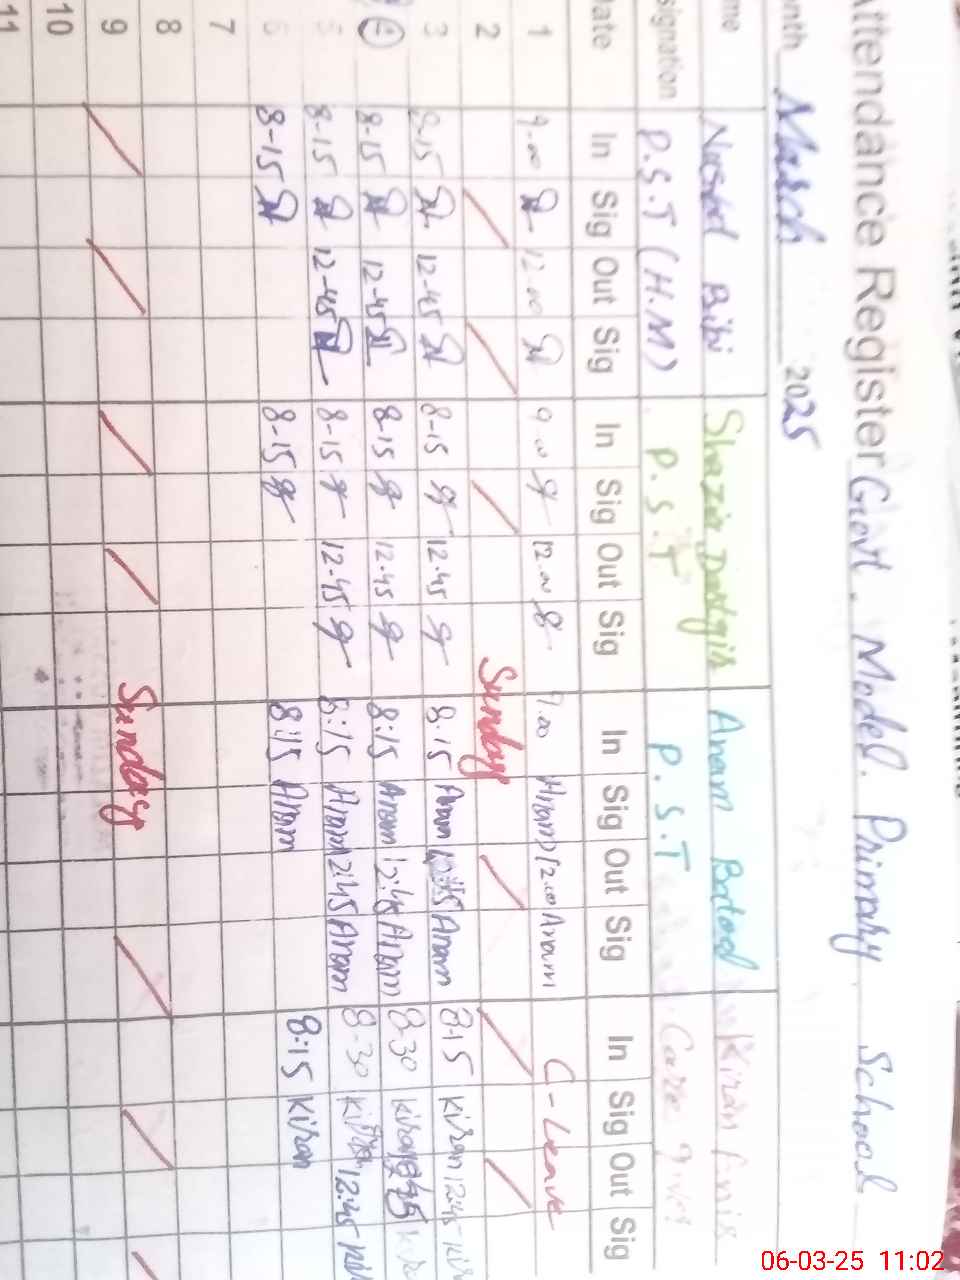 Attendance Register Govt. Model. Primary School
March 2025
Bibi Shazia Anam Batool Kiran Anis
P.S.T (H.M) P.S.T P.S.T Care
In Sig Out Sig In Sig Out Sig In Sig Out Sig In Sig Out Sig
1 9.00 12.00 9.00 12.00 9.00 Anam 12.00 Anam C-Leave
2 Sunday
3 8.15 12-45 8-15 12.45 8.15 Anam Anam 8.15 Kiran 12.45
4 8-15 12-45 8.15 12.45 8:15 Anam 12:45 Anam 8.30 Kiran
5 8-15 12-45 8-15 12.45 8:15 Anam 12:45 Anam 8-30 12:45
6 8-15 8-15 8:15 Anam 8:15 Kiran
7
8
9 Sunday
10
11
06-03-25 11:02